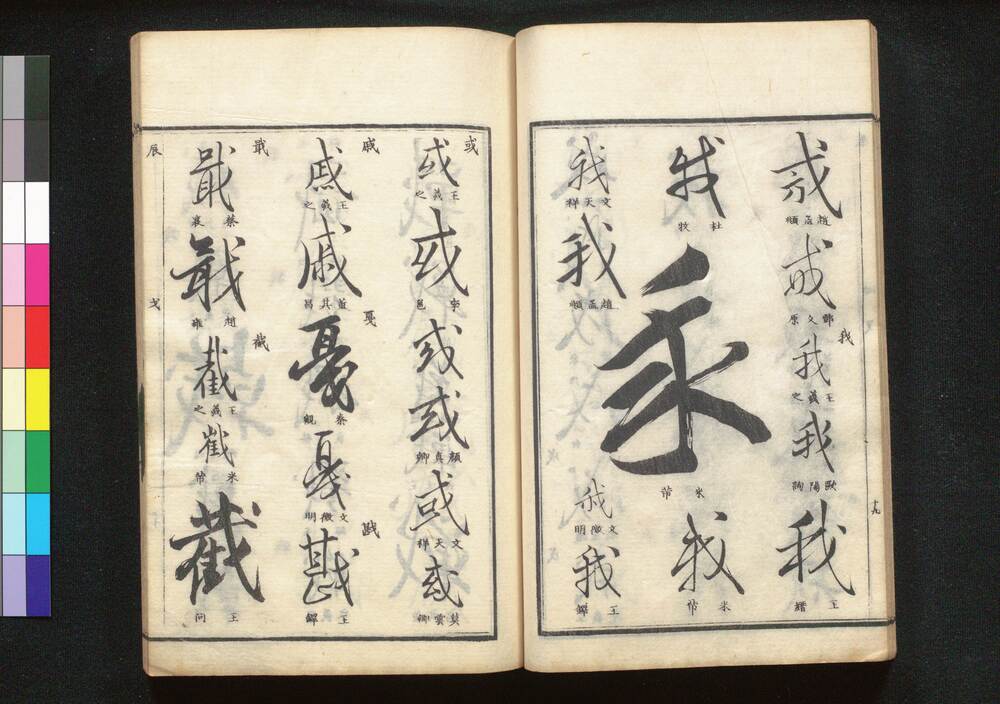 趙孟頫
鄧文原
我
我
王羲之
我
歐陽詢
我
王縉
十九
杜牧
我
米芾
我
米芾
我
文天祥
我
趙孟頫
我
文徵明
我
王鐸
或
或
王羲之
或
李邕
或
或
顏真卿
或
文天祥
或
莫雲卿
戚
戚
王羲之
戚
董其昌
戛
戛
秦觀
戛
文徵明
戡
戡
王鐸
戢
戢
蔡襄
戢
趙雍
截
截
王羲之
截
米芾
截
王問
辰
戈